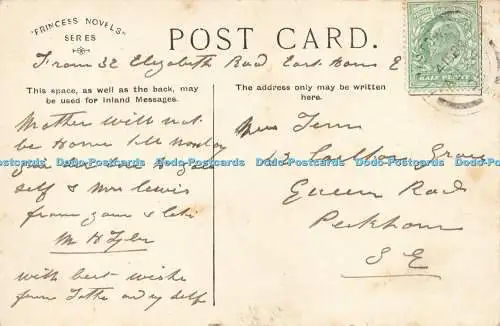 "PRINCESS NOVELS"
SERIES
POST CARD.
From 32 Elizabeth Road East Ham E
This space, as well as the back, may
be used for Inland Messages.
The address only may be written
here.
Mother will not
be Home till Monday
self & Mrs Lewis
from yours &
M H Tyler
with best wishes
from self
Miss
Grove
Queen Road
Peckham
S E
HALF PENNY
Dodo-Postcards Dodo-Postcards Dodo-Postcards Dodo-Postcards Dodo-Postcards Dodo-Postcards